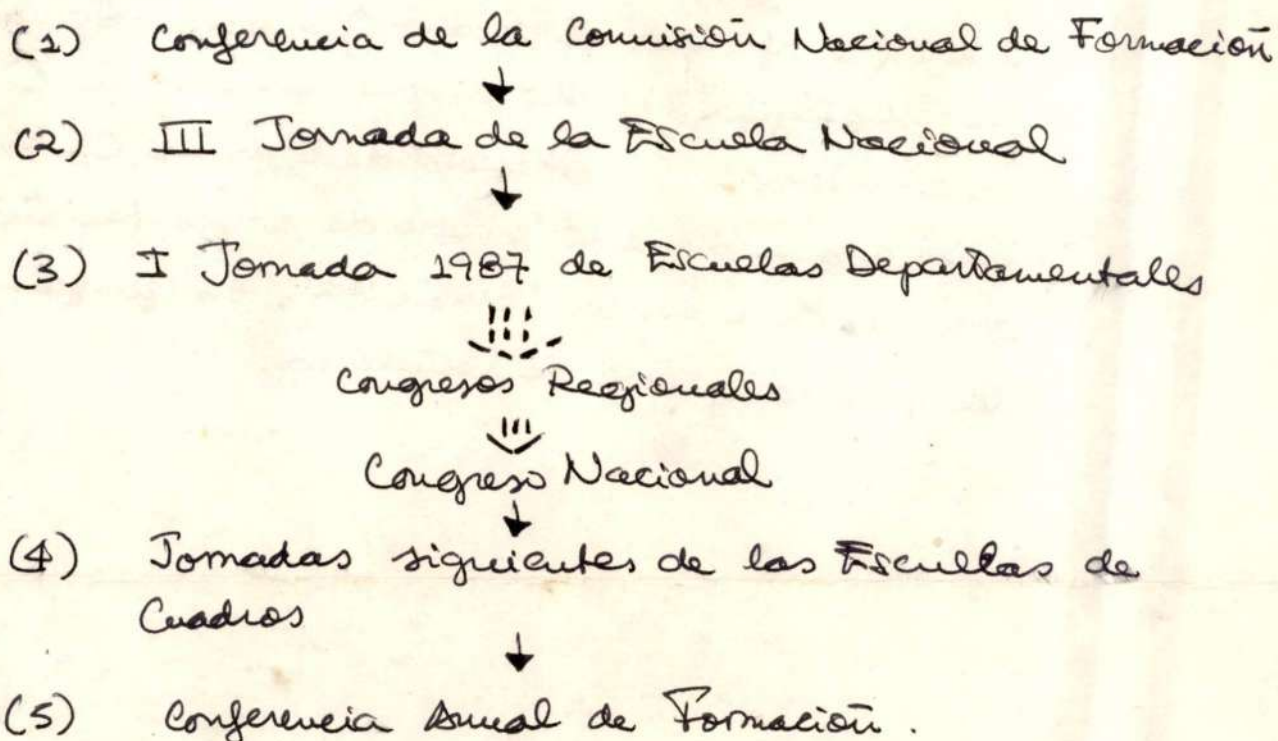 (1) Conferencia de la Comisión Nacional de Formación
(2) III Jornada de la Escuela Nacional
(3) I Jornada 1987 de Escuelas Departamentales
Congresos Regionales
Congreso Nacional
(4) Jornadas siguientes de las Escuelas de
Cuadros
(5) Conferencia Anual de Formación.